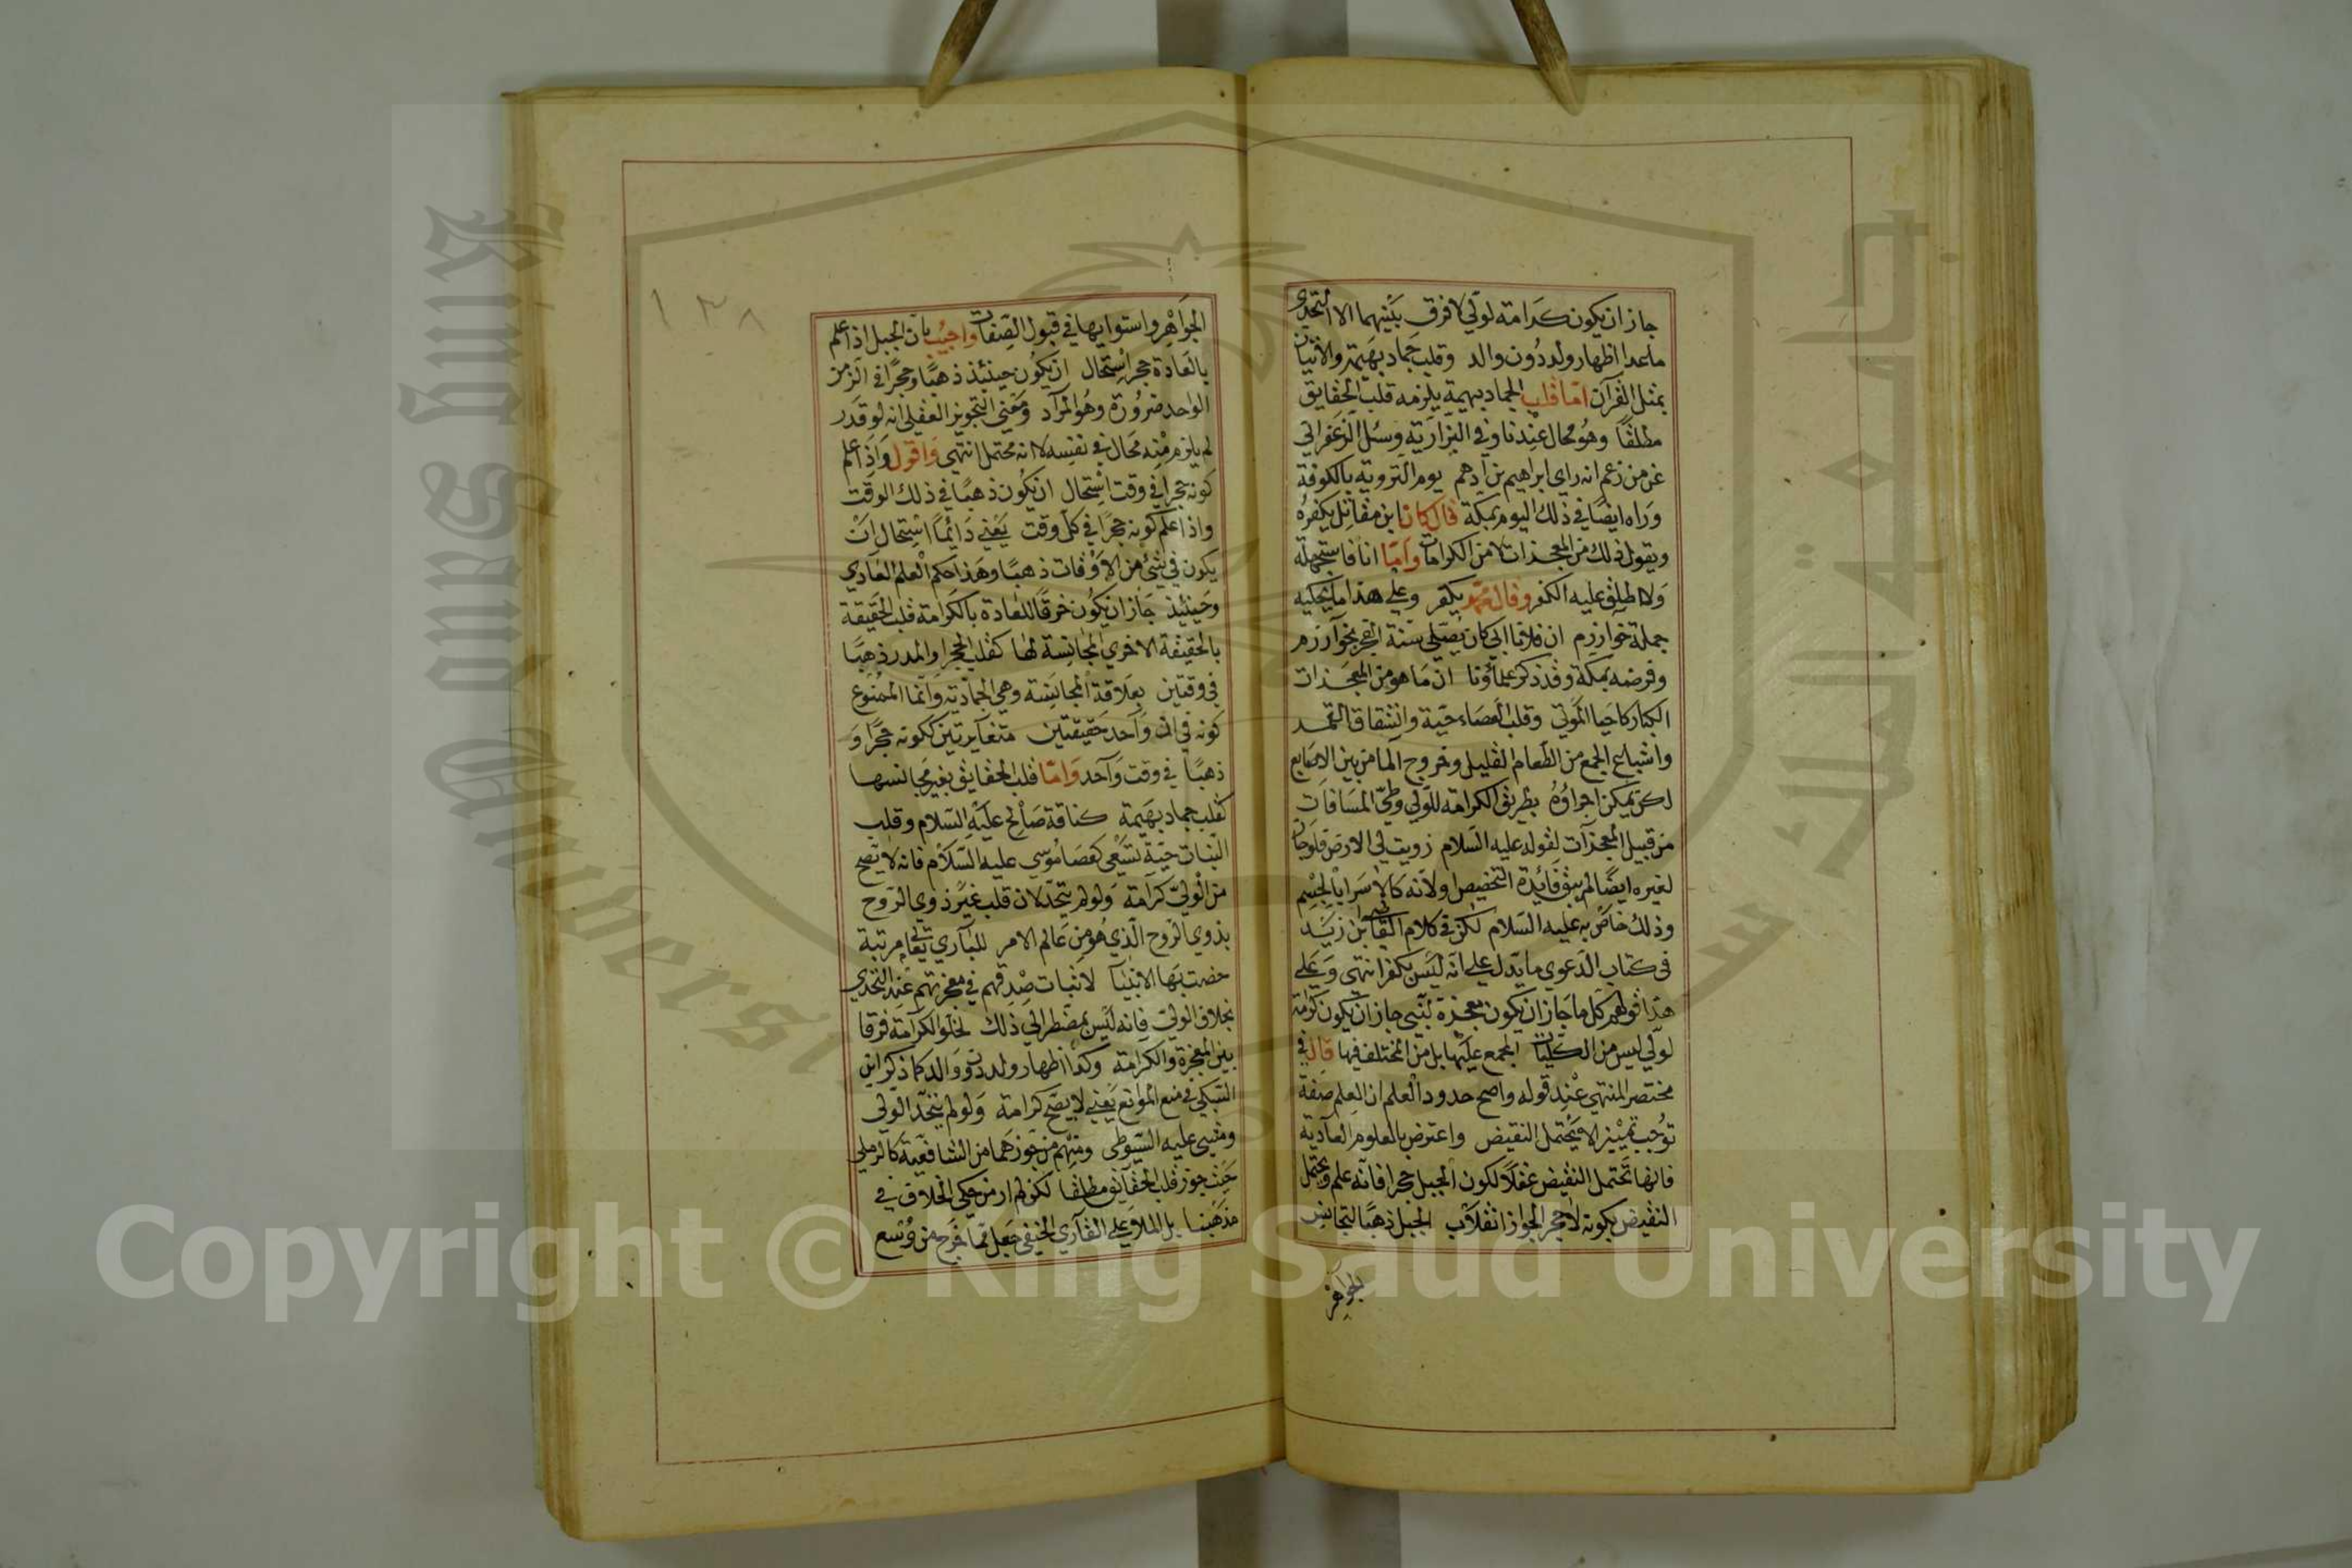 جاز ان يكون كرامة لولي لا فرق بينهما الا التحدي
ما عدا اظهار ولد دون والد وقلب جماد بهيمة والاتيان
بمثل القرآن اما قلب الجماد بهيمة يلزمه قلب الحقايق
مطلقا وهو محال عندنا وفي البزازية وسئل الزعفراني
عن من زعم انه راي ابراهيم بن ادهم يوم التروية بالكوفة
وراه ايضا في ذلك اليوم بمكة قال كان ابن مقاتل يكفره
ويقول ذلك من المعجزات لا من الكرامات واما انا فاستجهله
ولا اطلق عليه الكفر وقال محمد يكفر وعلي هذا ما يحكيه
جملة خوارزم ان فلانا كان يصلي سنة الفجر بخوارزم
وفرضه بمكة وقد ذكر علماؤنا ان ما هو من المعجزات
الكبار كاحيا الموتي وقلب العصاء حية وانشقاق القمر
واشباع الجمع من الطعام القليل وخروج الما من بين الاصابع
لا يمكن اجراؤه بطريق الكرامة للولي وطي المسافات
من قبيل المعجزات لقوله عليه السلام زويت لي الارض فلو جاز
لغيره ايضا لم يبق فائدة التخصيص ولانه كالاسراء بالجسم
وذلك خاص به عليه السلام لكن في كلام القاضي ابن زيد
في كتاب الدعوي ما يدل علي انه ليس بكفر انتهي وعلي
هذا قولهم كل ما جاز ان يكون معجزة لنبي جاز ان يكون كرامة
لولي ليس من الكليات المجمع عليها بل من المختلف فيها قال في
مختصر المنتهي عند قوله واصح حدود العلم ان العلم صفة
توجب تمييزا لا يحتمل النقيض واعترض بالعلوم العادية
فانها تحتمل النقيض عقلا لكون الجبل حجرا فانه علم ويحتمل
النقيض بكونه لا حجر الجواز انقلاب الجبل ذهبا لتجانس
الجواهر
١٣٨
الجواهر واستوايها في قبول الصفات واجيب بان الجبل اذا علم
بالعادة حجر استحال ان يكون حينئذ ذهبا وحجرا في الزمن
الواحد ضرورة وهو المراد ومعني التجويز العقلي انه لو قدر
لم يلزم منه محال في نفسه لا انه محتمل انتهي واقول واذا علم
كونه حجرا في وقت استحال ان يكون ذهبا في ذلك الوقت
واذا علم كونه حجرا في كل وقت يعني دائما استحال ان
يكون في شئ من الاوقات ذهبا وهذا حكم العلم العادي
وحينئيذ جاز ان يكون خرقا للعادة بالكرامة قلب الحقيقة
بالحقيقة الاخري المجانسة لها كقلب الحجر والمدر ذهبا
في وقتين بعلاقة المجانسة وهي الجمادية وانما الممنوع
كونه في ان واحد حقيقتين متغايرتين ككونه حجرا و
ذهبا في وقت واحد واما قلب الحقايق بغير مجانسها
كقلب جماد بهيمة كناقة صالح عليه السلام وقلب
النبات حية تسعي كعصا موسي عليه السلام فانه لا يصح
من الولي كرامة ولو لم يتحد لان قلب غير ذوي الروح
بذوي الروح الذي هو من عالم الامر للباري تعالي مرتبة
خصت بها الانبيا لاثبات صدقهم في معجزتهم عند التحدي
بخلاف الولي فانه ليس بمضطر الي ذلك لخلو الكرامة فرقا
بين المعجزة والكرامة وكذا اظهار ولد دون والد كما ذكر ابن
السبكي في منع الموانع يعني لا يصح كرامة ولو لم يتحد الولي
ومشي عليه السيوطي ومنهم من جوزهما من الشافعية كالرملي
حيث جوز قلب الحقايق مطلقا لكن لم ار من حكي الخلاف في
مذهبنا بل الملا علي القاري الحنفي جعل مما خرج من وسع
King Saud University
Copyright © King Saud University